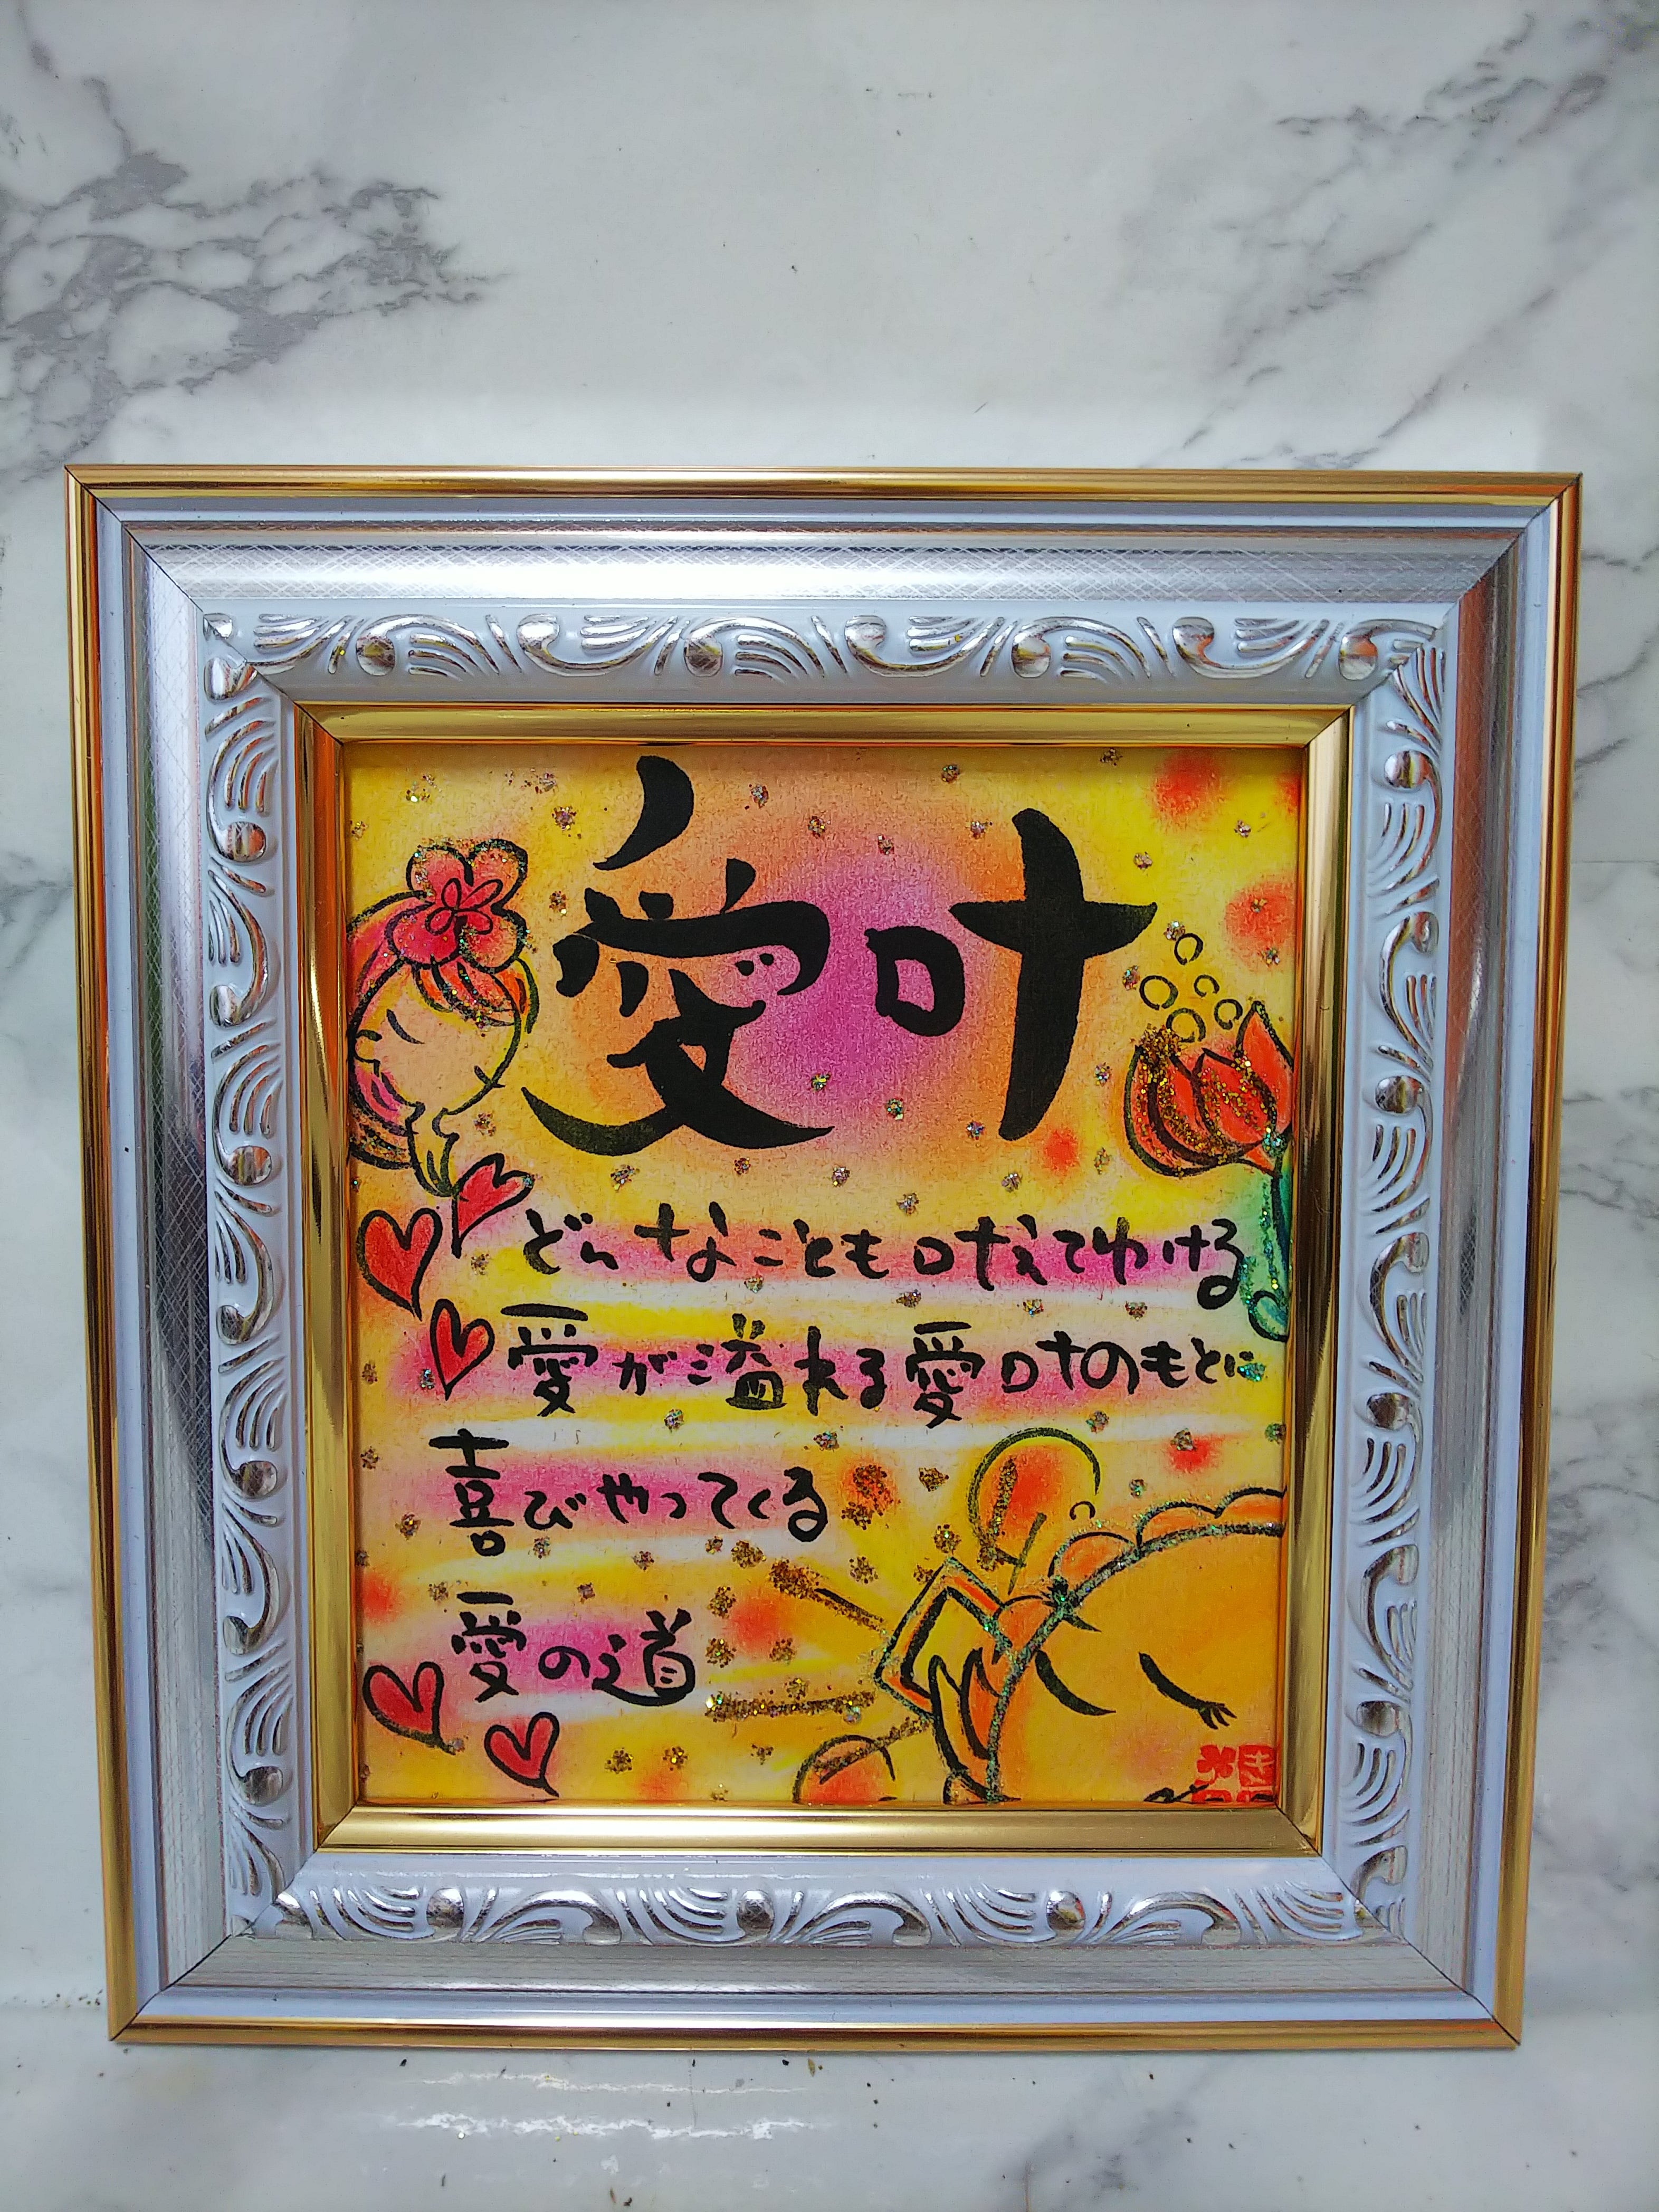 愛叶
どんなことも叶えてゆける
愛が溢れる愛叶のもとに
喜びやってくる
愛の道